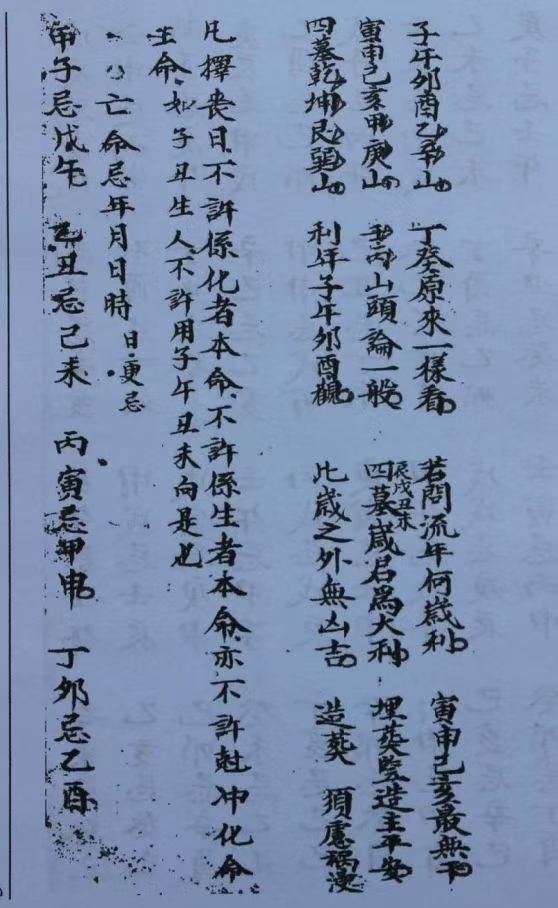 子午卯酉乙辛山 丁癸原來一樣看 若問流年何歲利 寅申巳亥最無干
寅申巳亥甲庚山 壬丙山頭論一般 四墓辰戌丑未歲君為大利 埋葬豎造主平安
四墓乾坤艮巽山 利年子午卯酉觀 此歲之外無凶吉 造葬須慮禍漫
凡擇喪日不許係化者本命不許係生者本命亦不許尅冲化命
生命如子丑生人不許用子午丑未向是也
亡命忌年月日時日更忌
甲子忌戊午 乙丑忌己未 丙寅忌甲申 丁卯忌乙酉